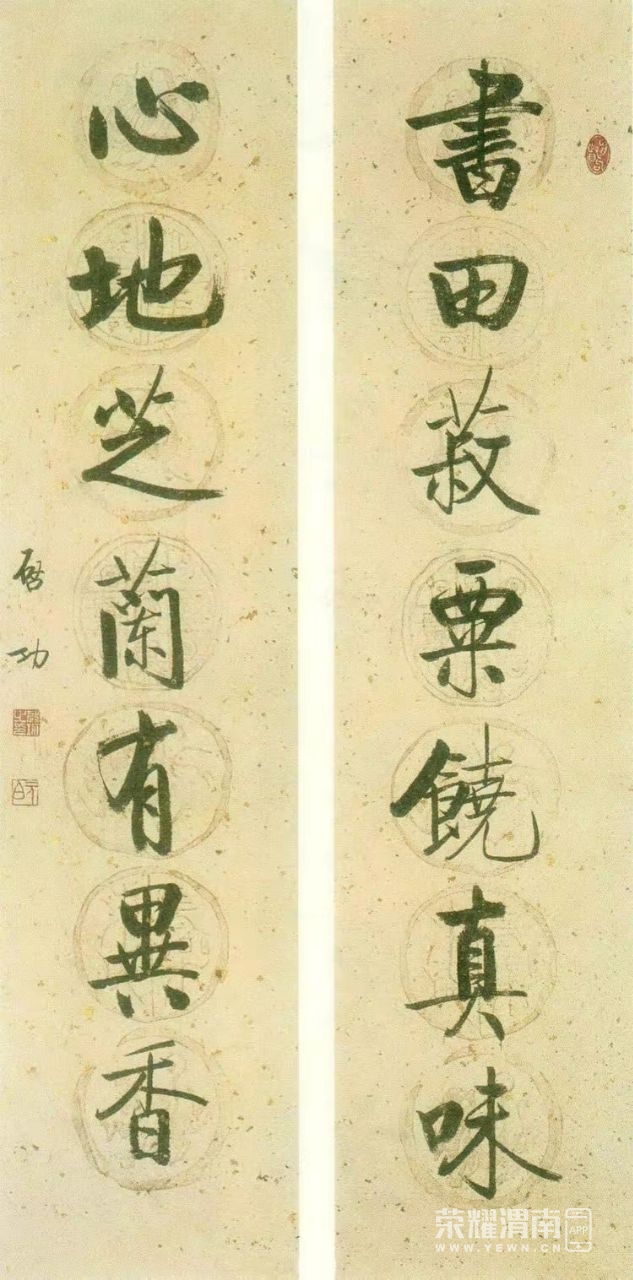 書田菽粟饒真味
心地芝蘭有異香
啓功
荣耀渭南 APP
WWW.YEWN.CN